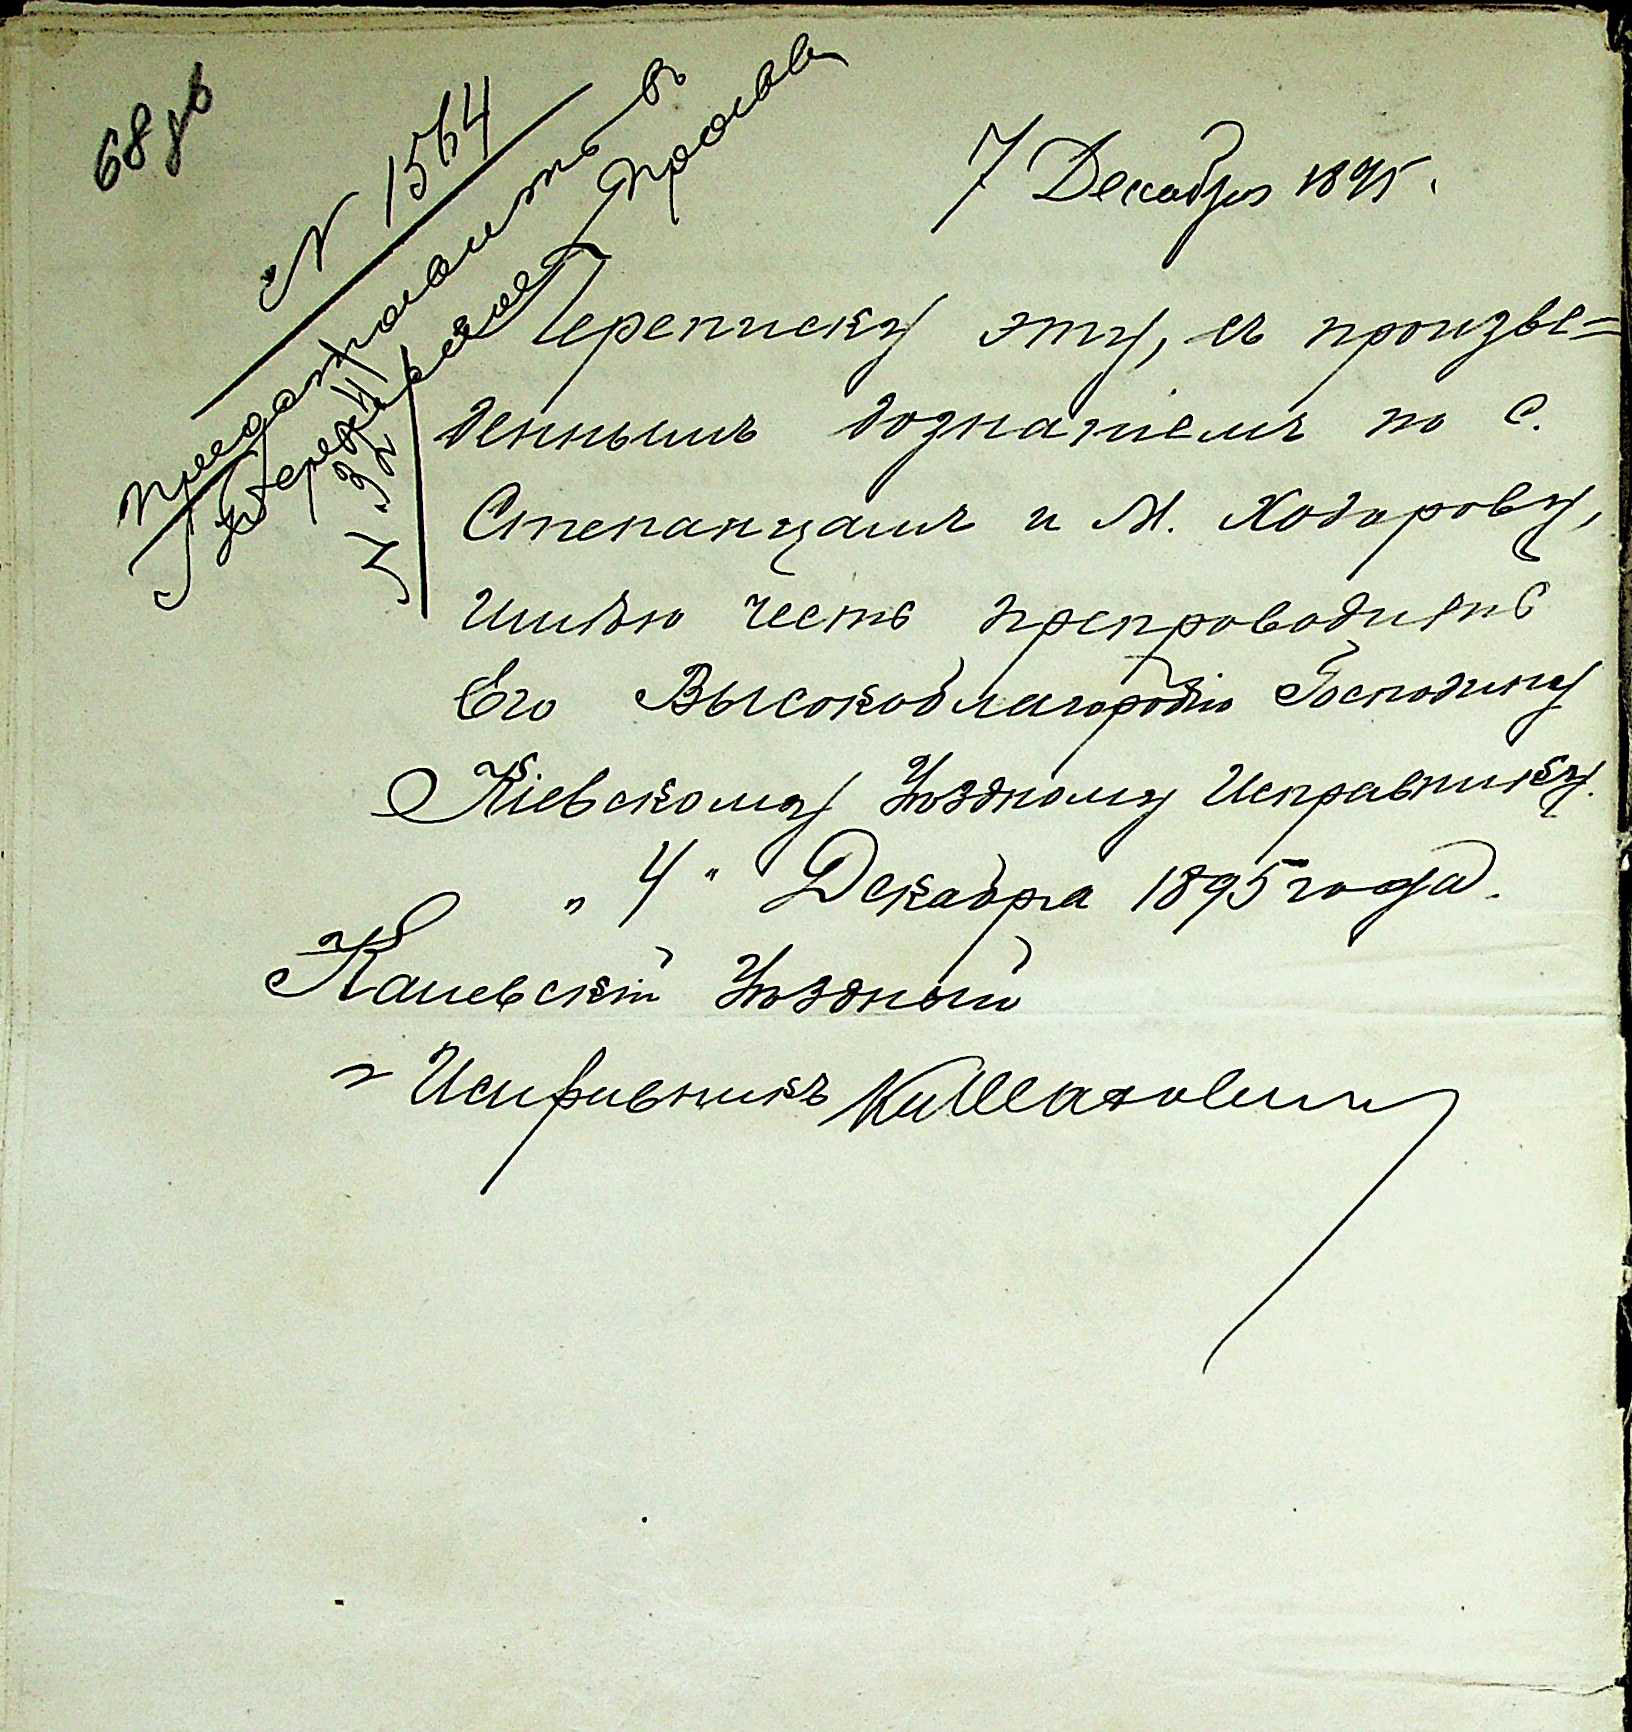 68 об
7 Декабря 1895.
№ 1564
Предложить въ
Переписку эту, съ произве=
деннымъ дознаніемъ по с.
Степанцамъ и М. Ходорову,
имѣю честь препроводить
Его Высокоблагородію Господину
Кіевскому Уѣздному Исправнику.
„ 4 " Декабря 1895 года.
Каневскій Уѣздный
Исправникъ